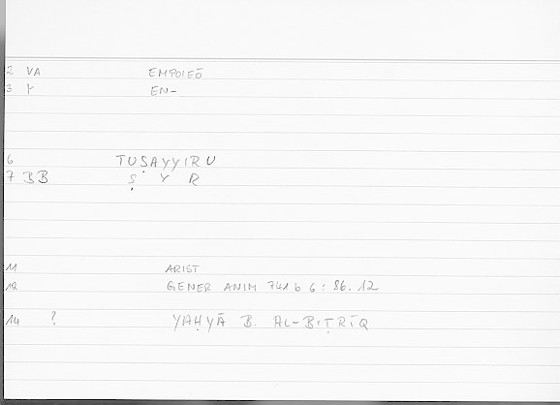 2 VA EMPOIEŌ
3 Y EN-
6 TUṢAYYIRU
7 BB Ṣ Y R
11 ARIST
12 GENER ANIM 741 b 6 : 86.12
14 ? YAḤYĀ B. AL-BIṬRĪQ